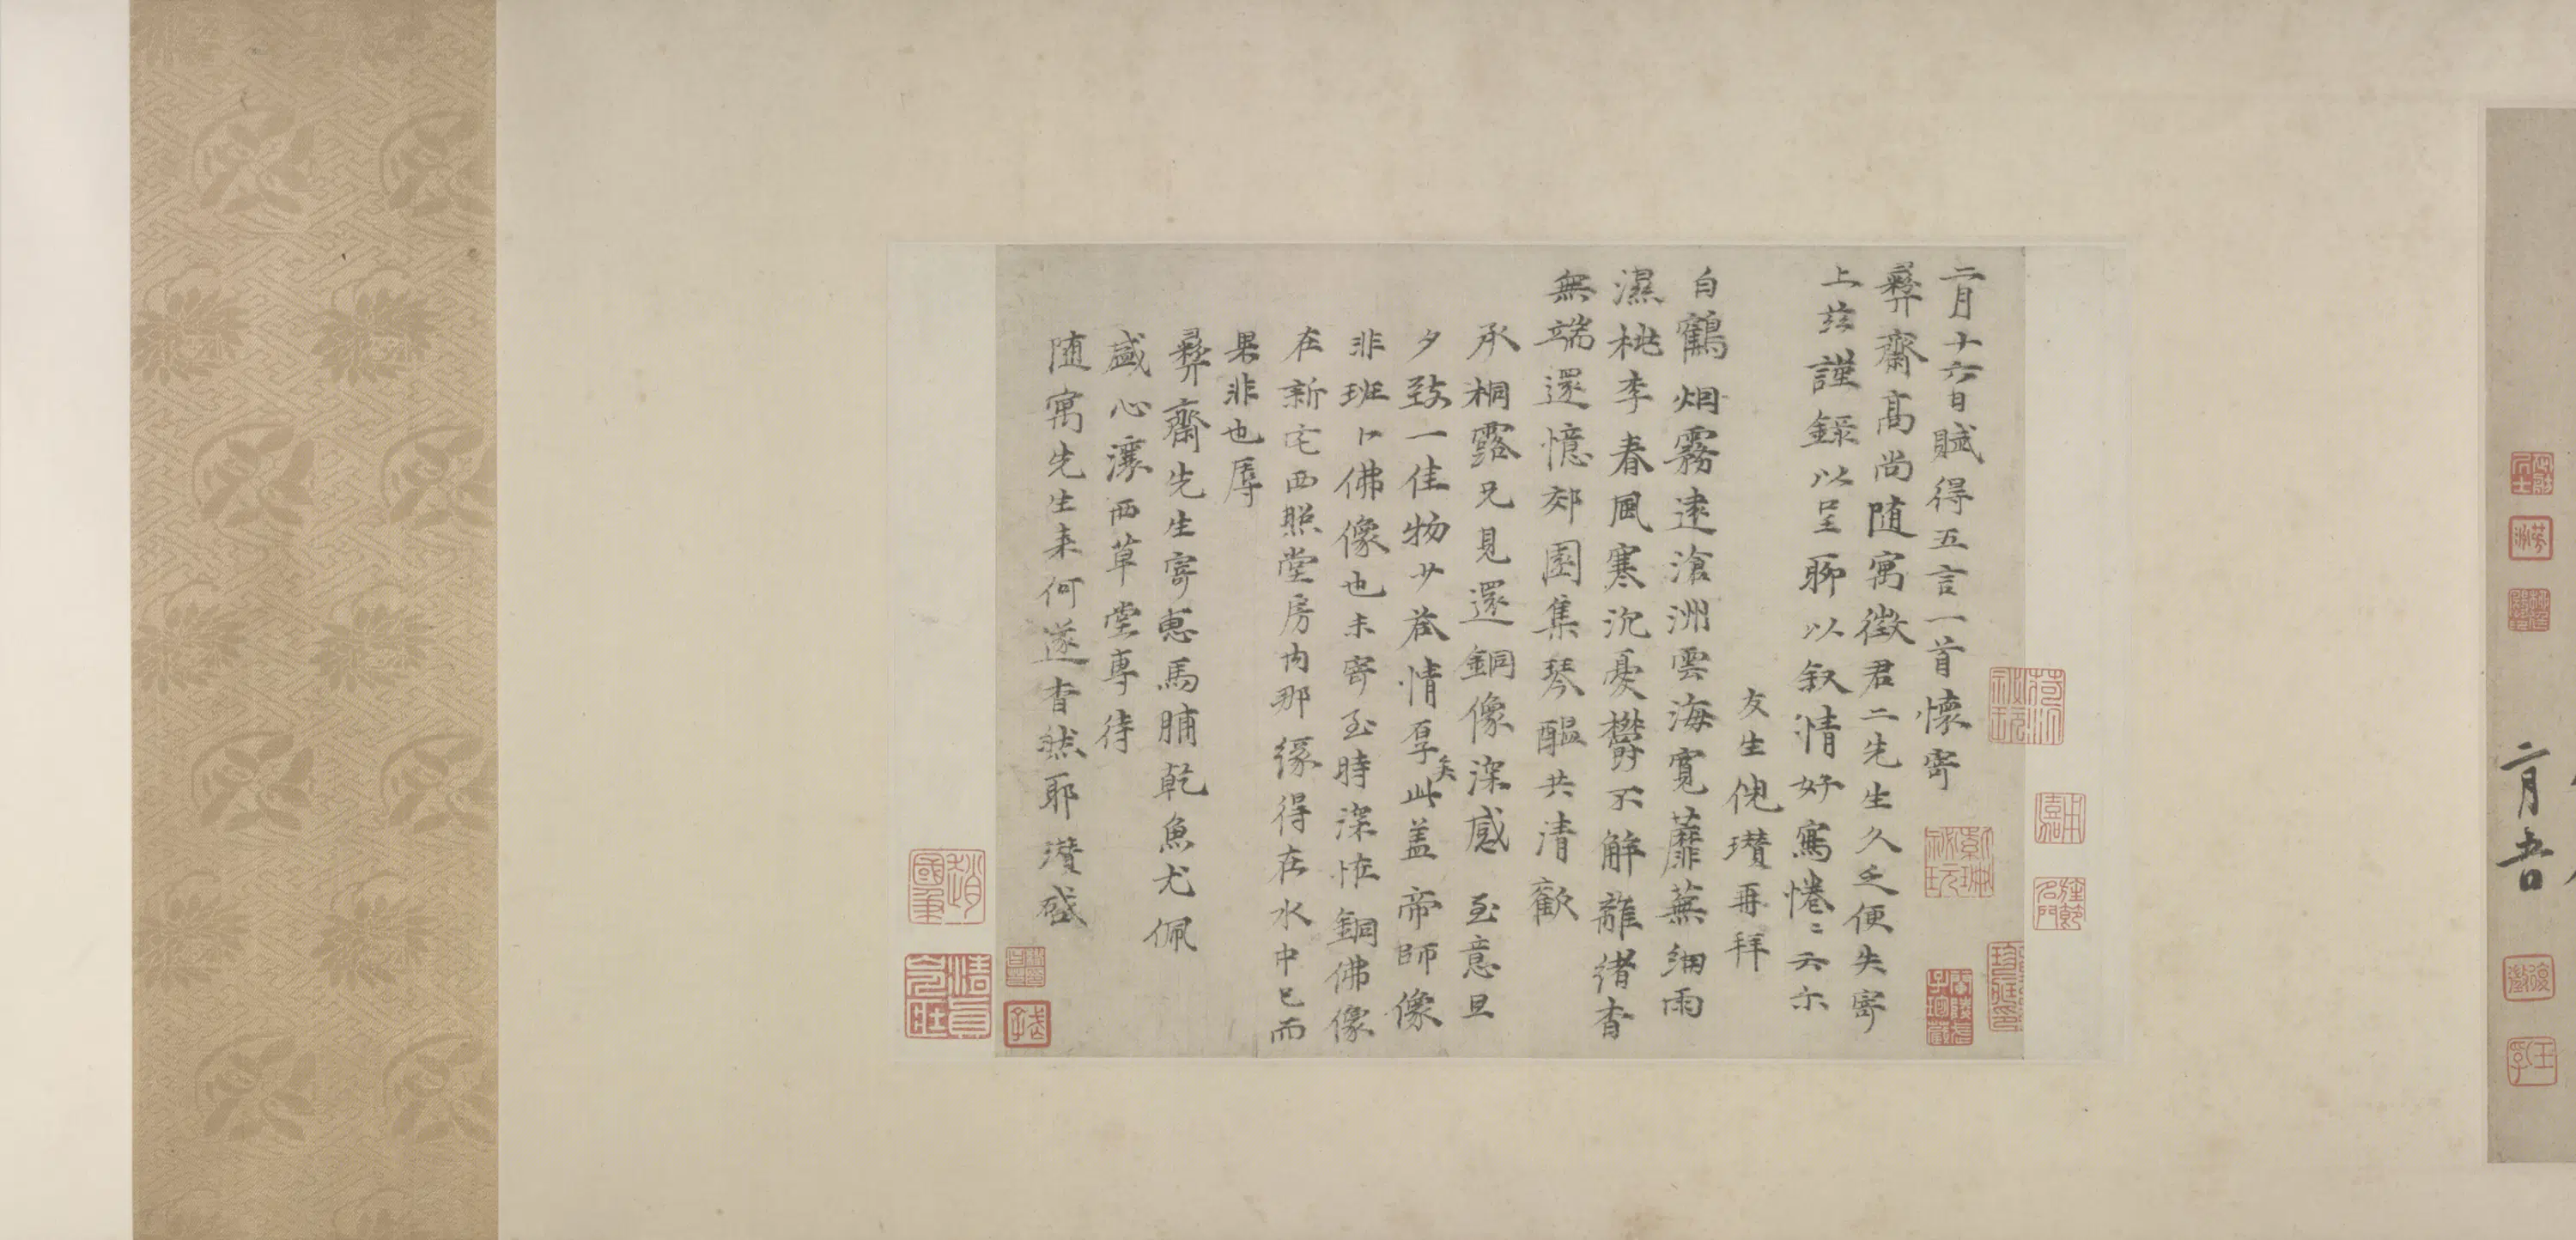 二月十六日賦得五言一首懷寄
彝齋高尚随寓徵君二先生久乏便失寄
上茲謹録以呈聊以叙情好寫惓〻云尒
友生倪瓚再拜
白鶴烟霧逮滄洲雲海寬蘼蕪細雨
濕桃李春風寒沉憂欝不解離緒杳
無端還憶郊園集琴醖共清歡
承桐露兄見還銅像深感 至意旦
夕致一佳物少荅情厚矣此盖帝師像
非班卜佛像也未寄至時深恠銅佛像
在新宅西照堂房内那緣得在水中已而
果非也辱
彝齋先生寄惠馬脯乾魚尤佩
盛心瀼西草堂專待
随寓先生来何遂杳然耶瓚啟
二月